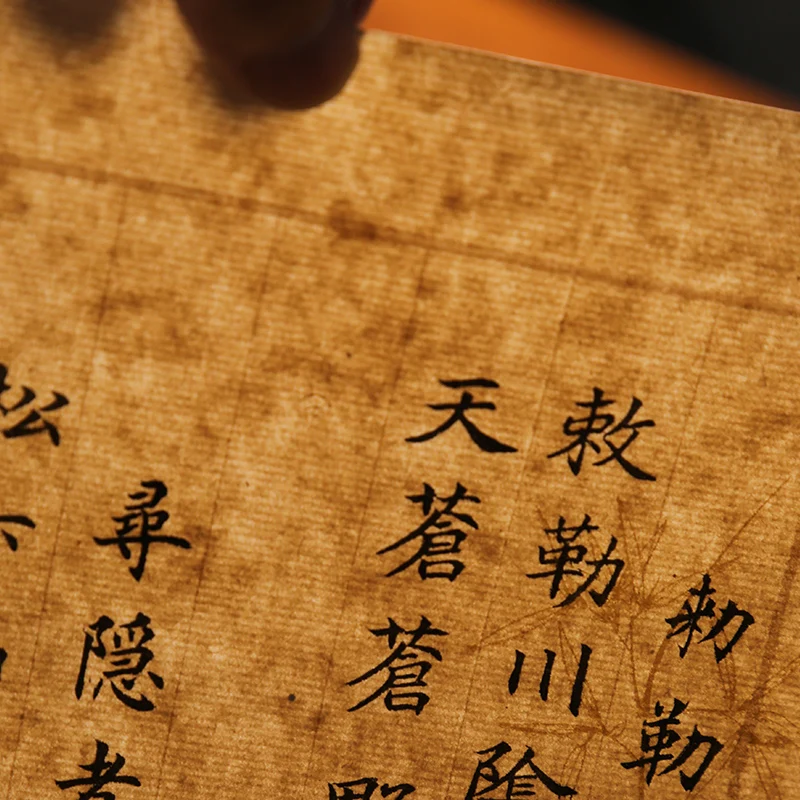 勅勒
敕勒川陰
天蒼蒼野
尋隠者
松